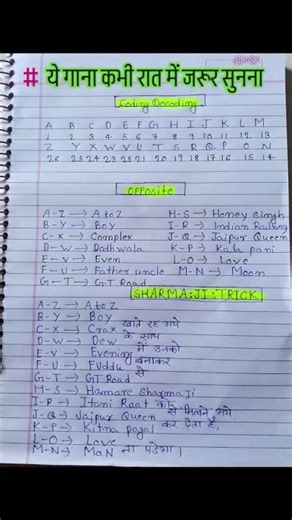 # ये गाना कभी रात में जरूर सुनना
Coding Decoding
A B C D E F G H I J K L M
1 2 3 4 5 6 7 8 9 10 11 12 13
Z Y X W V U T S R Q P O N
26 25 24 23 22 21 20 19 18 17 16 15 14
opposite
A-Z → A to Z H-S → Honey Singh
B-Y → Boy I-R → Indian Railway
C-X → Complex J-Q → Jaipur Queen
D-W → Dodhwala K-P → Kala pani
E-V → Even L-O → Love
F-U → Father uncle M-N → Moon
G-T → GT Road
SHARMA:JI:TRICK
A-Z → A to Z
B-Y → Boy
C-X → Crax खाते रह गये
D-W → Dew के साथ
E-V → Evening में उनको
F-U → FUddu बनाकर
G-T → GT Road से
M-S → Hamare SharmaJi
I-R → Itani Raat को
J-Q → Jaipur Queen से मिलने गये
K-P → Kitna pagal कर देता है,
L-O → Love
M-N → MaN ना पडेगा।